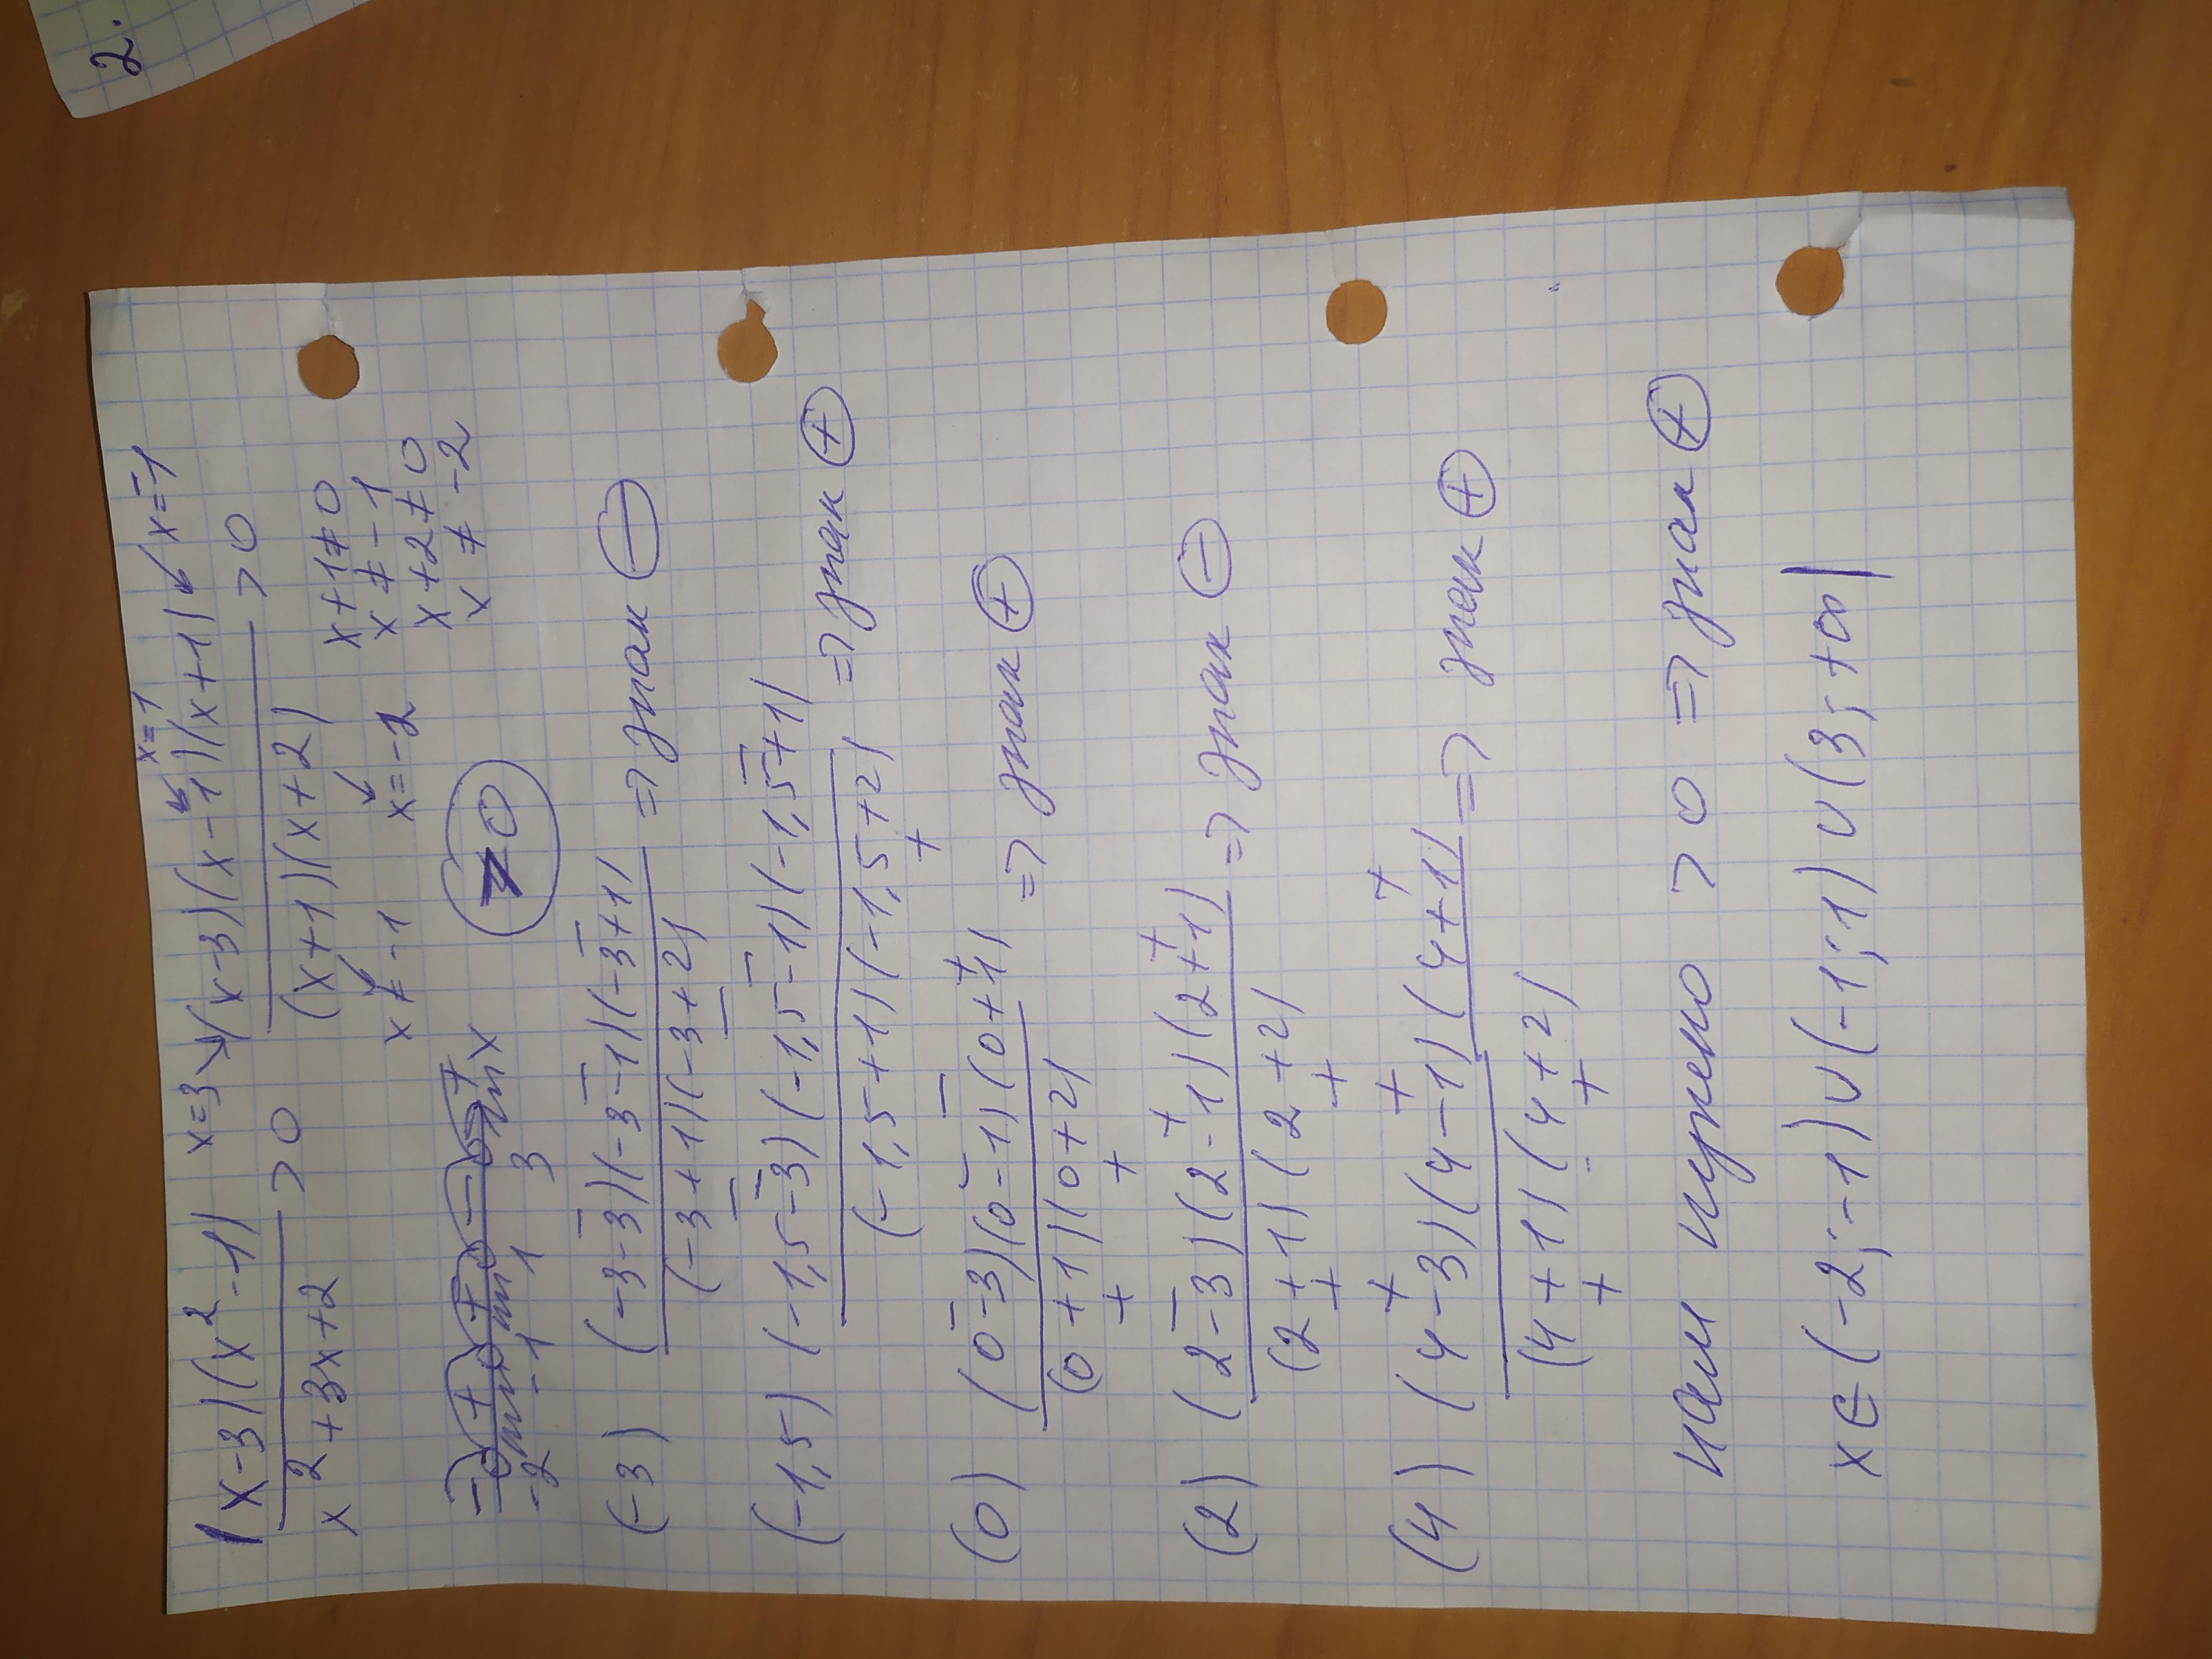 2.
x=3 x=1
(x-3)(x²-1) / x²+3x+2 > 0 (x-3)(x-1)(x+1) / (x+1)(x+2) > 0 x=-1
x≠-1 x=-2
x+1≠0
x≠-1
x+2≠0
x≠-2
- + + - + x
-2 -1 1 3
≠0
(-3) (-3-3)(-3-1)(-3+1) / (-3+1)(-3+2) => знак -
(-1,5) (-1,5-3)(-1,5-1)(-1,5+1) / (-1,5+1)(-1,5+2) => знак +
(0) (0-3)(0-1)(0+1) / (0+1)(0+2) => знак +
(2) (2-3)(2-1)(2+1) / (2+1)(2+2) => знак -
(4) (4-3)(4-1)(4+1) / (4+1)(4+2) => знак +
нам нужно > 0 => знак +
x∈(-2;-1)∪(-1;1)∪(3;+∞)